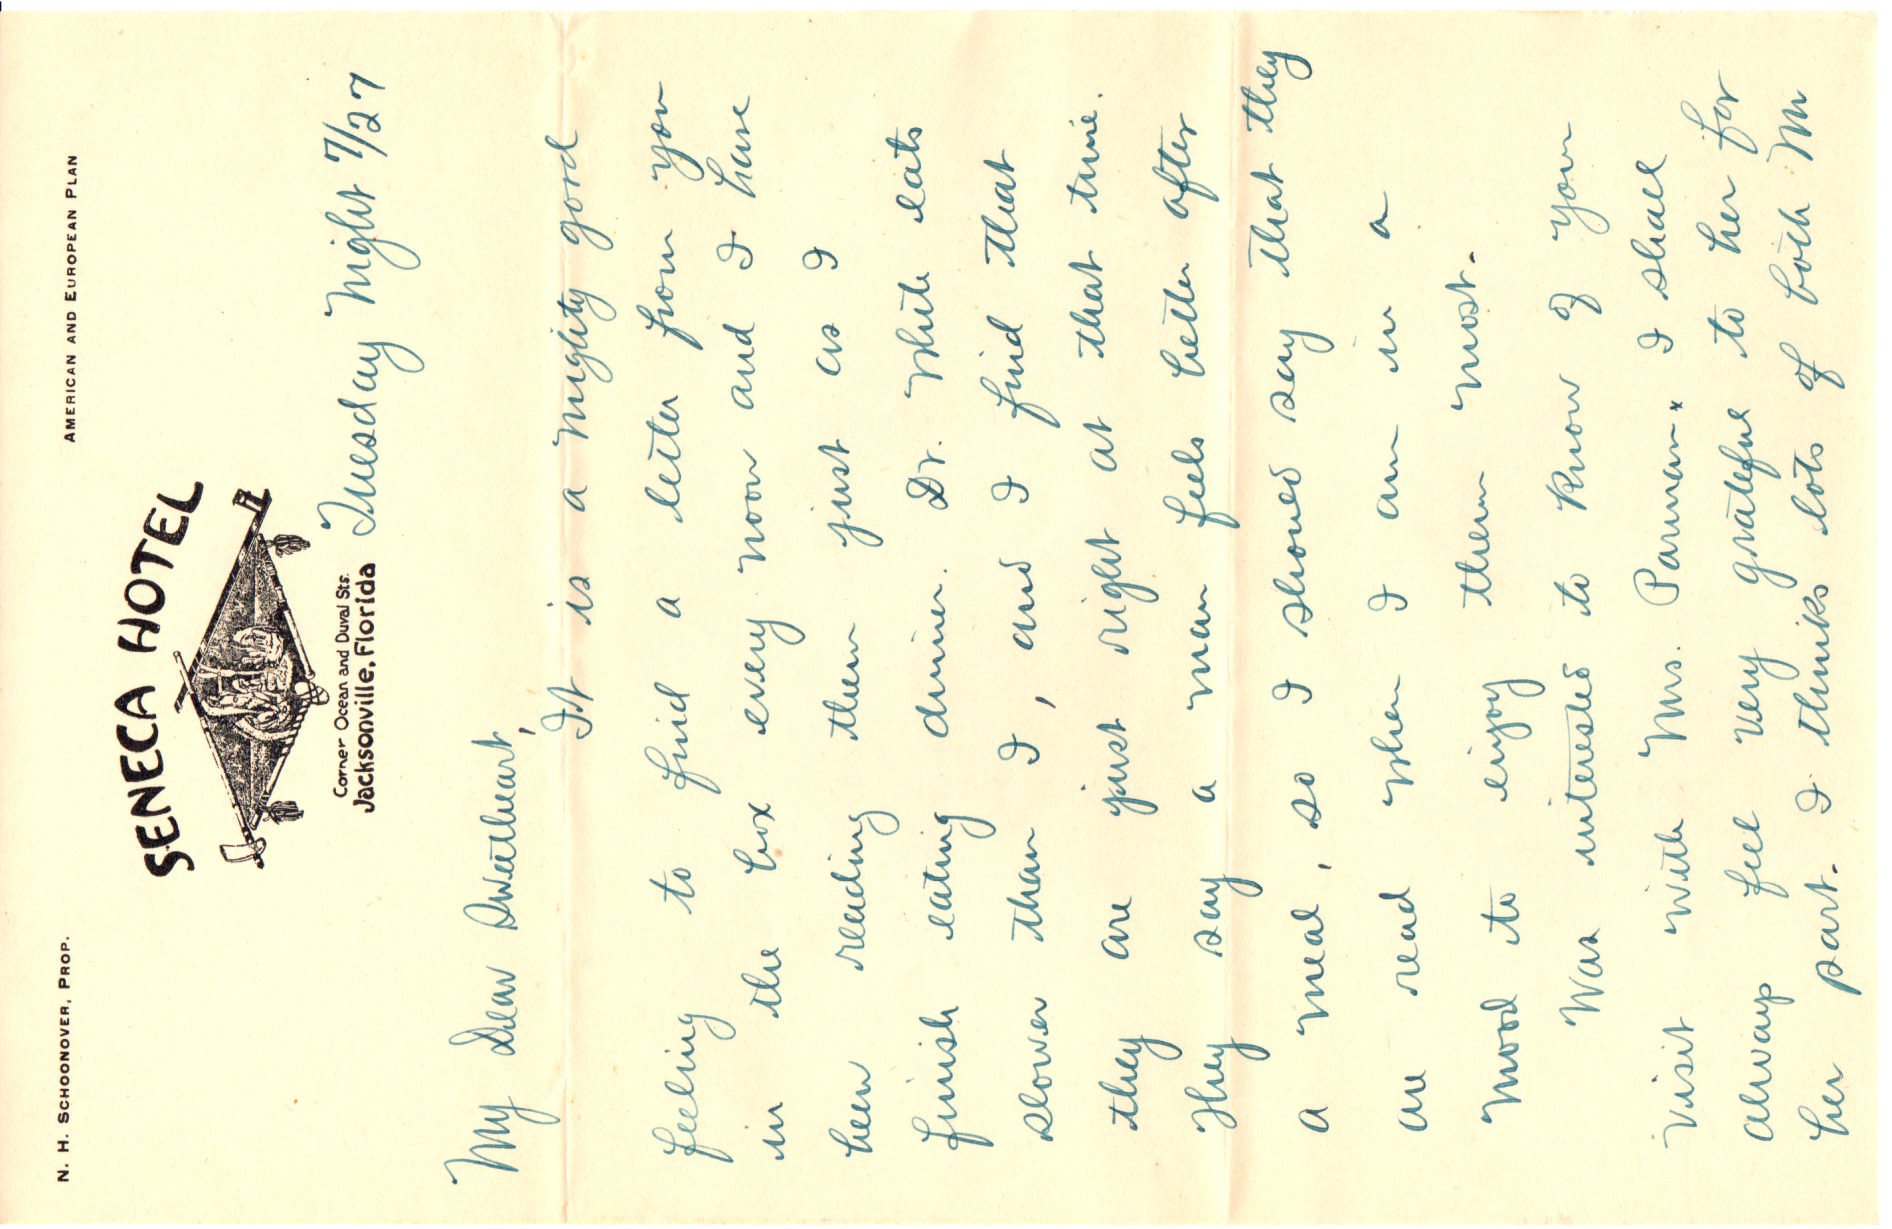 N. H. SCHOONOVER, PROP.
AMERICAN AND EUROPEAN PLAN
SENECA HOTEL
Corner Ocean and Duval Sts.
Jacksonville, Florida
Tuesday Night 7/27
My Dear Sweetheart,
It is a mighty good
feeling to find a letter from you
in the box every noon and I have
been reading them just as I
finish eating dinner. Dr. White eats
slower than I, and I find that
they are just right at that time.
They say a man feels better after
a meal, so I should say that they
are read when I am in a
mood to enjoy them most.
Was interested to know of your
visit with Mrs. Parman. I shall
always feel very grateful to her for
her part. I thinks lots of both Mr